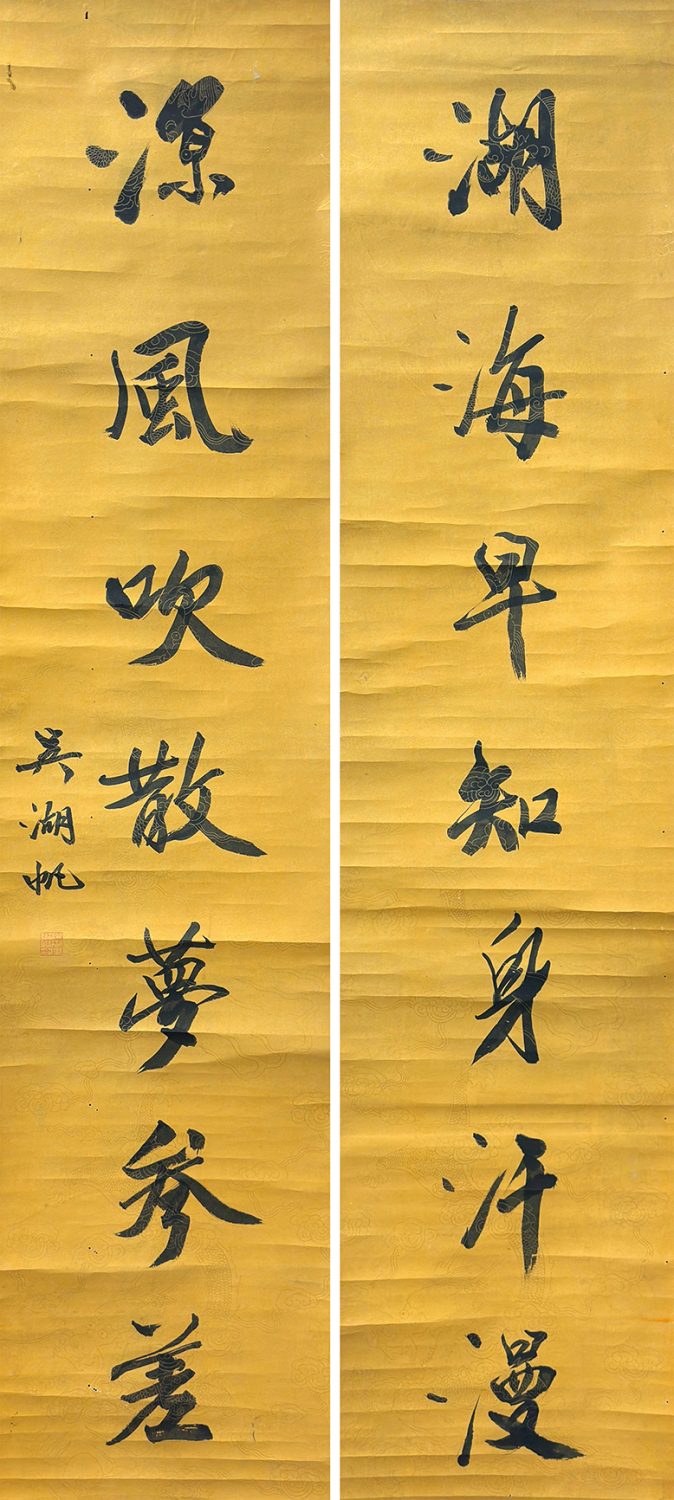 湖海早知身汗漫
涼風吹散夢參差
吳湖帆